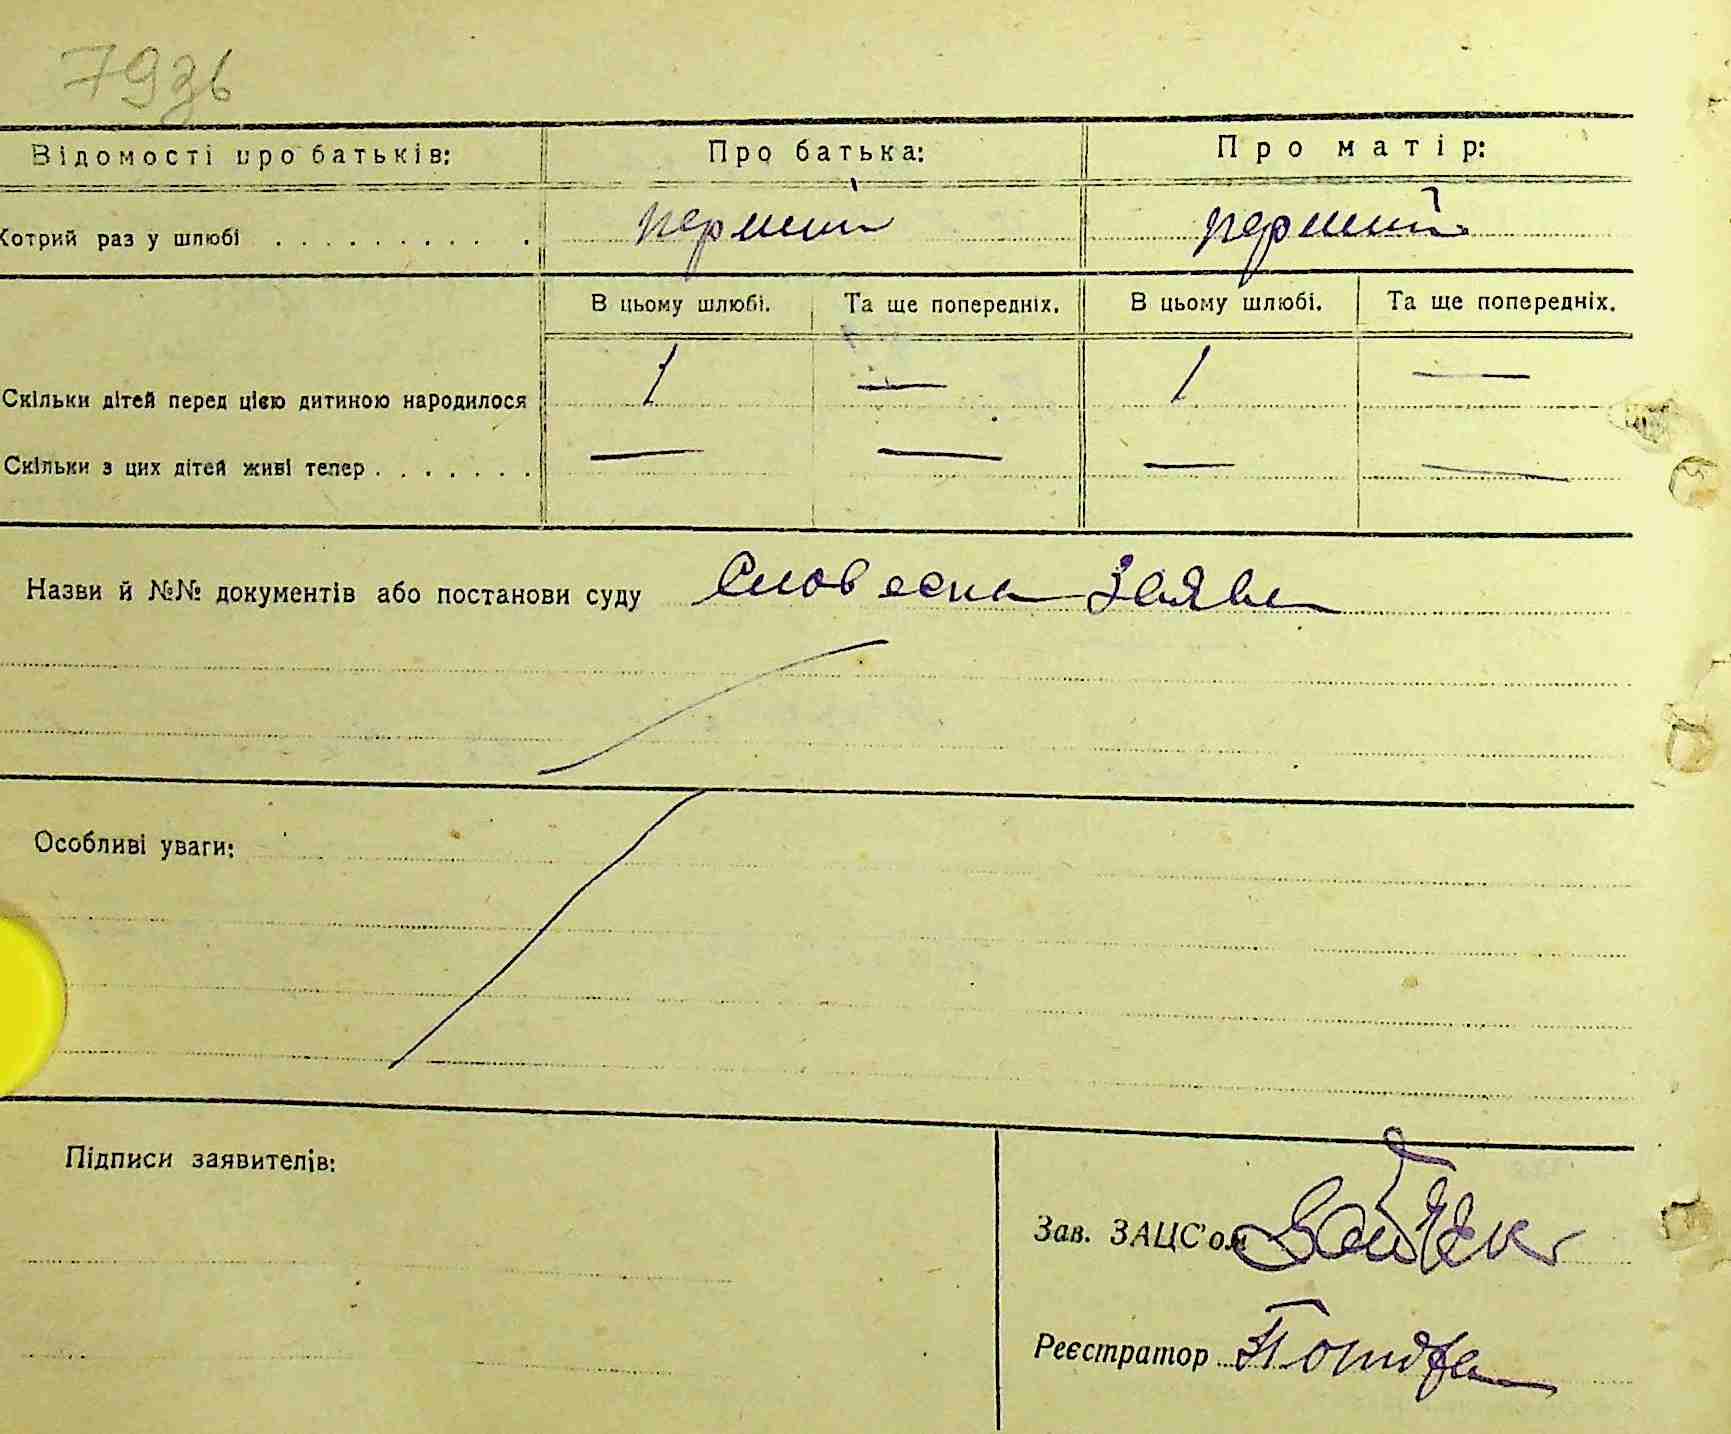 793б
Відомості про батьків: Про батька: Про матір:
Котрий раз у шлюбі . . . . . . . . . . перший перший
В цьому шлюбі. Та ще попередніх. В цьому шлюбі. Та ще попередніх.
Скільки дітей перед цією дитиною народилося 1 — 1 —
Скільки з цих дітей живі тепер . . . . . . . — — — —
Назви й №№ документів або постанови суду Словесна заява
Особливі уваги:
Підписи заявителів:
Зав. ЗАЦС'ом
Реєстратор